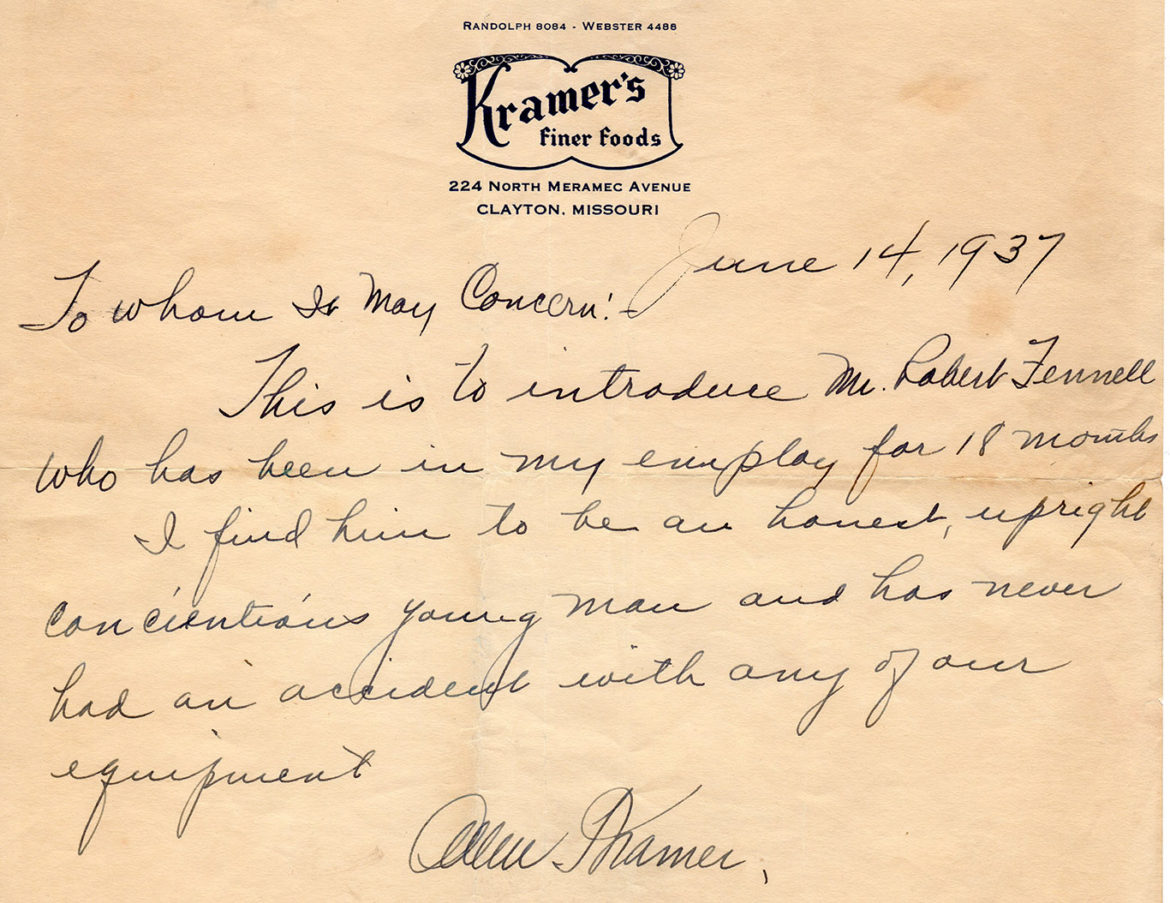 RANDOLPH 8084 - WEBSTER 4488
Kramer's
Finer Foods
224 NORTH MERAMEC AVENUE
CLAYTON, MISSOURI
June 14, 1937
To Whom It May Concern:-
This is to introduce Mr. Robert Fennell
who has been in my employ for 18 months
I find him to be an honest, upright
concientious young man and has never
had an accident with any of our
equipment
Allen Kramer.